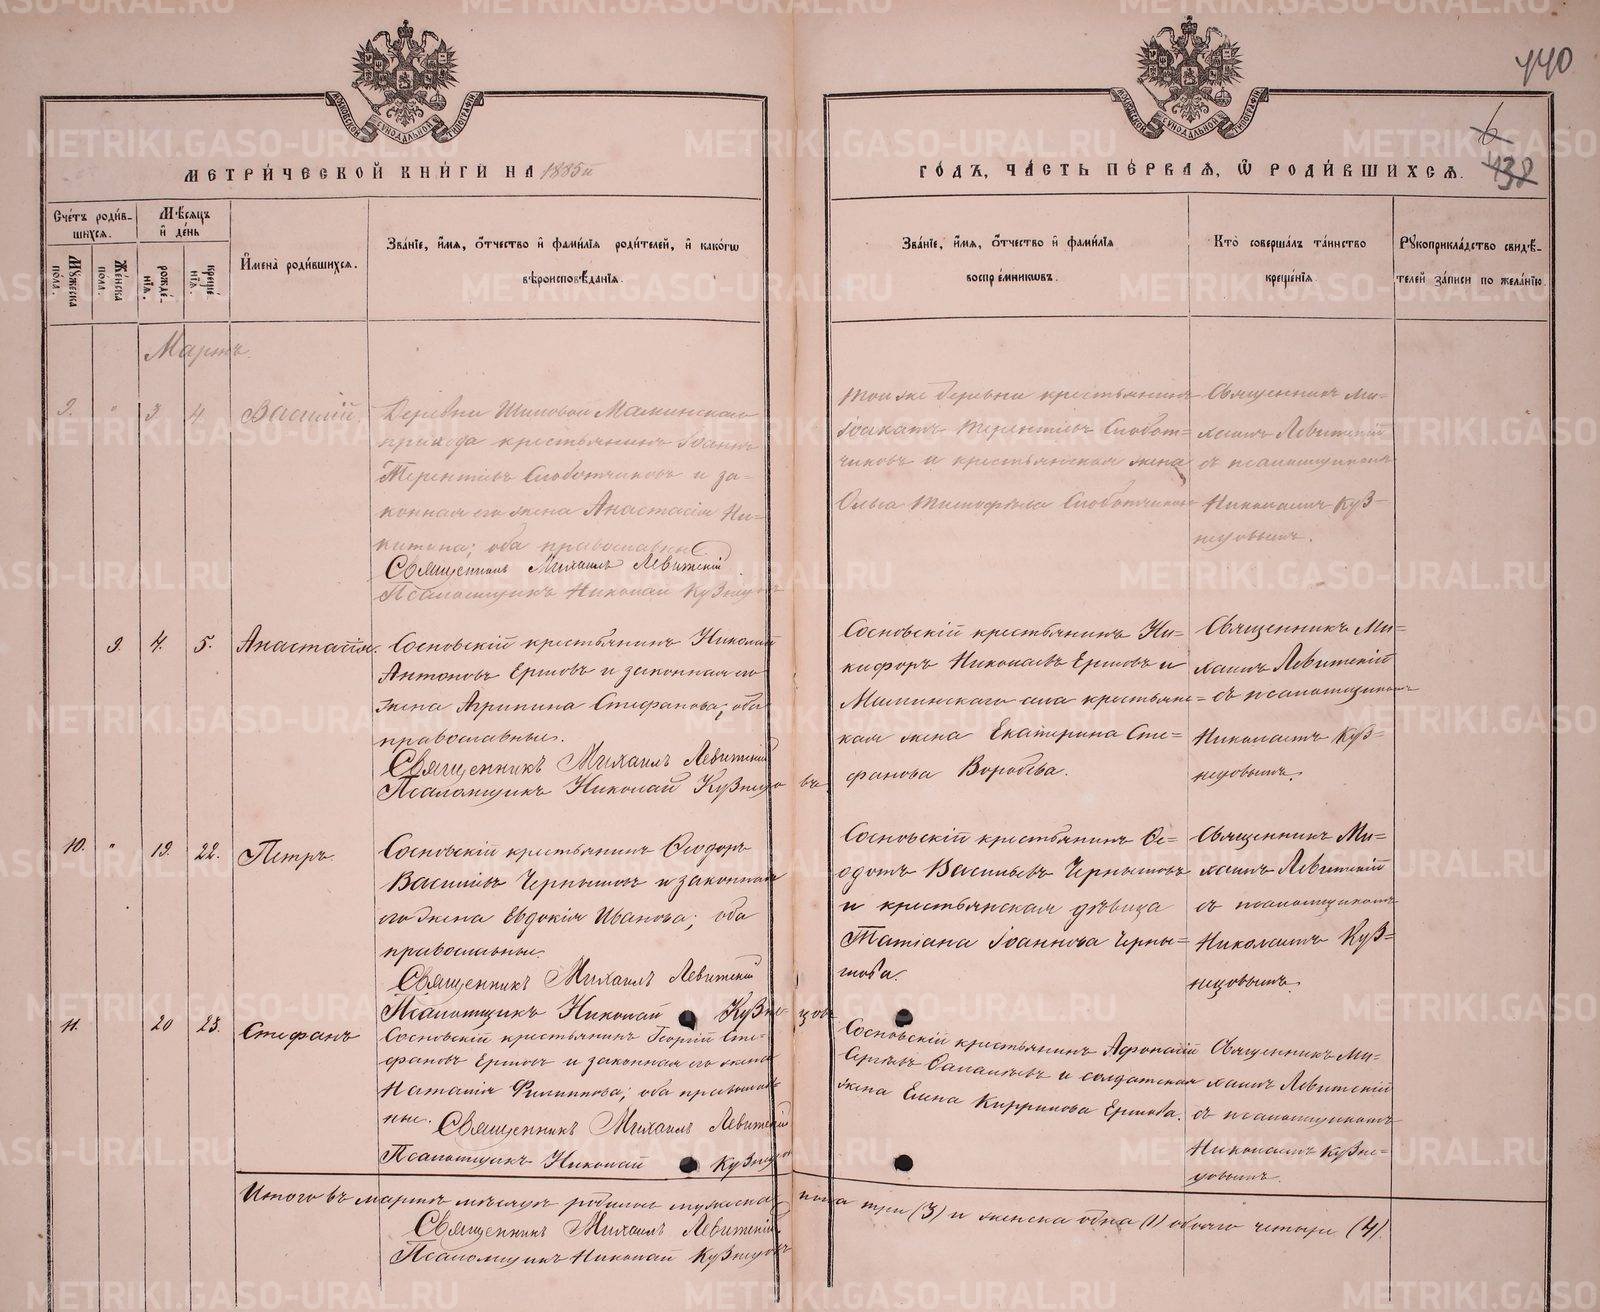 440
6
438
МОСКОВСКОЙ СѴНОДАЛЬНОЙ ТИПОГРАФІИ
МОСКОВСКОЙ СѴНОДАЛЬНОЙ ТИПОГРАФІИ
МЕТРИ́ЧЕСКОЙ КНИ́ГИ НА 1885й
ГО́ДЪ, ЧА́СТЬ ПЕ́РВАЯ, Ѡ РОДИ́ВШИХСЯ.
Сче́тъ роди́в-
шихся.
Мѣ́сяцъ
и҆ де́нь
Мꙋ́жеска
по́ла.
Же́нска
по́ла.
рожде́-
нїѧ.
креще́
нїѧ.
И҆мена̀ роди́вшихся.
Зва́нїе, и҆́мя, ѻ҆́тчество и҆ фами́лїя роди́телей, и҆ како́гѡ
вѣроисповѣ́данїя.
Зва́нїе, и҆́мя, ѻ҆́тчество и҆ фами́лїя
воспрїе́мникѡвъ.
Кто̀ соверша́лъ та́инство
креще́нїя.
Рꙋкоприкла́дство свидѣ́-
телей за́писи по жела́нїю.
Мартъ.
9. " 3. 4. Василій.
Деревни Шиповой Маминскаго
прихода крестьянинъ Іоаннъ
Терентіевъ Слоботчиковъ и за-
конная его жена Анастасія Ни-
китина; оба православные
Священникъ Михаилъ Левитскій
Псаломщикъ Николай Кузнецовъ
Той же деревни крестьянинъ
Іоакимъ Терентіевъ Слобот-
чиковъ и крестьянская жена
Ольга Тимофѣева Слоботчикова
Священникъ Ми-
хаилъ Левитскій
съ псаломщикомъ
Николаемъ Куз-
нецовымъ.
9. 4. 5. Анастасія.
Сосновскій крестьянинъ Николай
Антоновъ Ершовъ и законная его
жена Агрипина Стефанова; оба
православные.
Священникъ Михаилъ Левитскій
Псаломщикъ Николай Кузнецовъ
Сосновскій крестьянинъ Ни-
кифоръ Николаевъ Ершовъ и
Маминскаго села крестьянс-
кая жена Екатерина Сте-
фанова Воробьева.
Священникъ Ми-
хаилъ Левитскій
съ псаломщикомъ
Николаемъ Куз-
нецовымъ.
10. " 19. 22. Петръ.
Сосновскій крестьянинъ Ѳеодоръ
Васильевъ Чернышовъ и законная
его жена Евдокія Иванова; оба
православные.
Священникъ Михаилъ Левитскій
Псаломщикъ Николай Кузнецовъ
Сосновскій крестьянинъ Ѳе-
одотъ Васильевъ Чернышовъ
и крестьянская дѣвица
Татіана Іоаннова Черны-
шова.
Священникъ Ми-
хаилъ Левитскій
съ псаломщикомъ
Николаемъ Куз-
нецовымъ.
11. 20 23. Стефанъ
Сосновскій крестьянинъ Георгій Сте-
фановъ Ершовъ и законная его жена
Наталія Филиппова; оба православ-
ные. Священникъ Михаилъ Левитскій
Псаломщикъ Николай Кузнецовъ
Сосновскій крестьянинъ Афонасій
Сергѣевъ и солдатская
жена Елена Кириллова Ершова.
Священникъ Ми-
хаилъ Левитскій
съ псаломщикомъ
Николаемъ Кузне-
цовымъ.
Итого въ мартѣ мѣсяцѣ родилось мужска пола три (3) и женска одна (1) обоего четыре (4).
Священникъ Михаилъ Левитскій
Псаломщикъ Николай Кузнецовъ